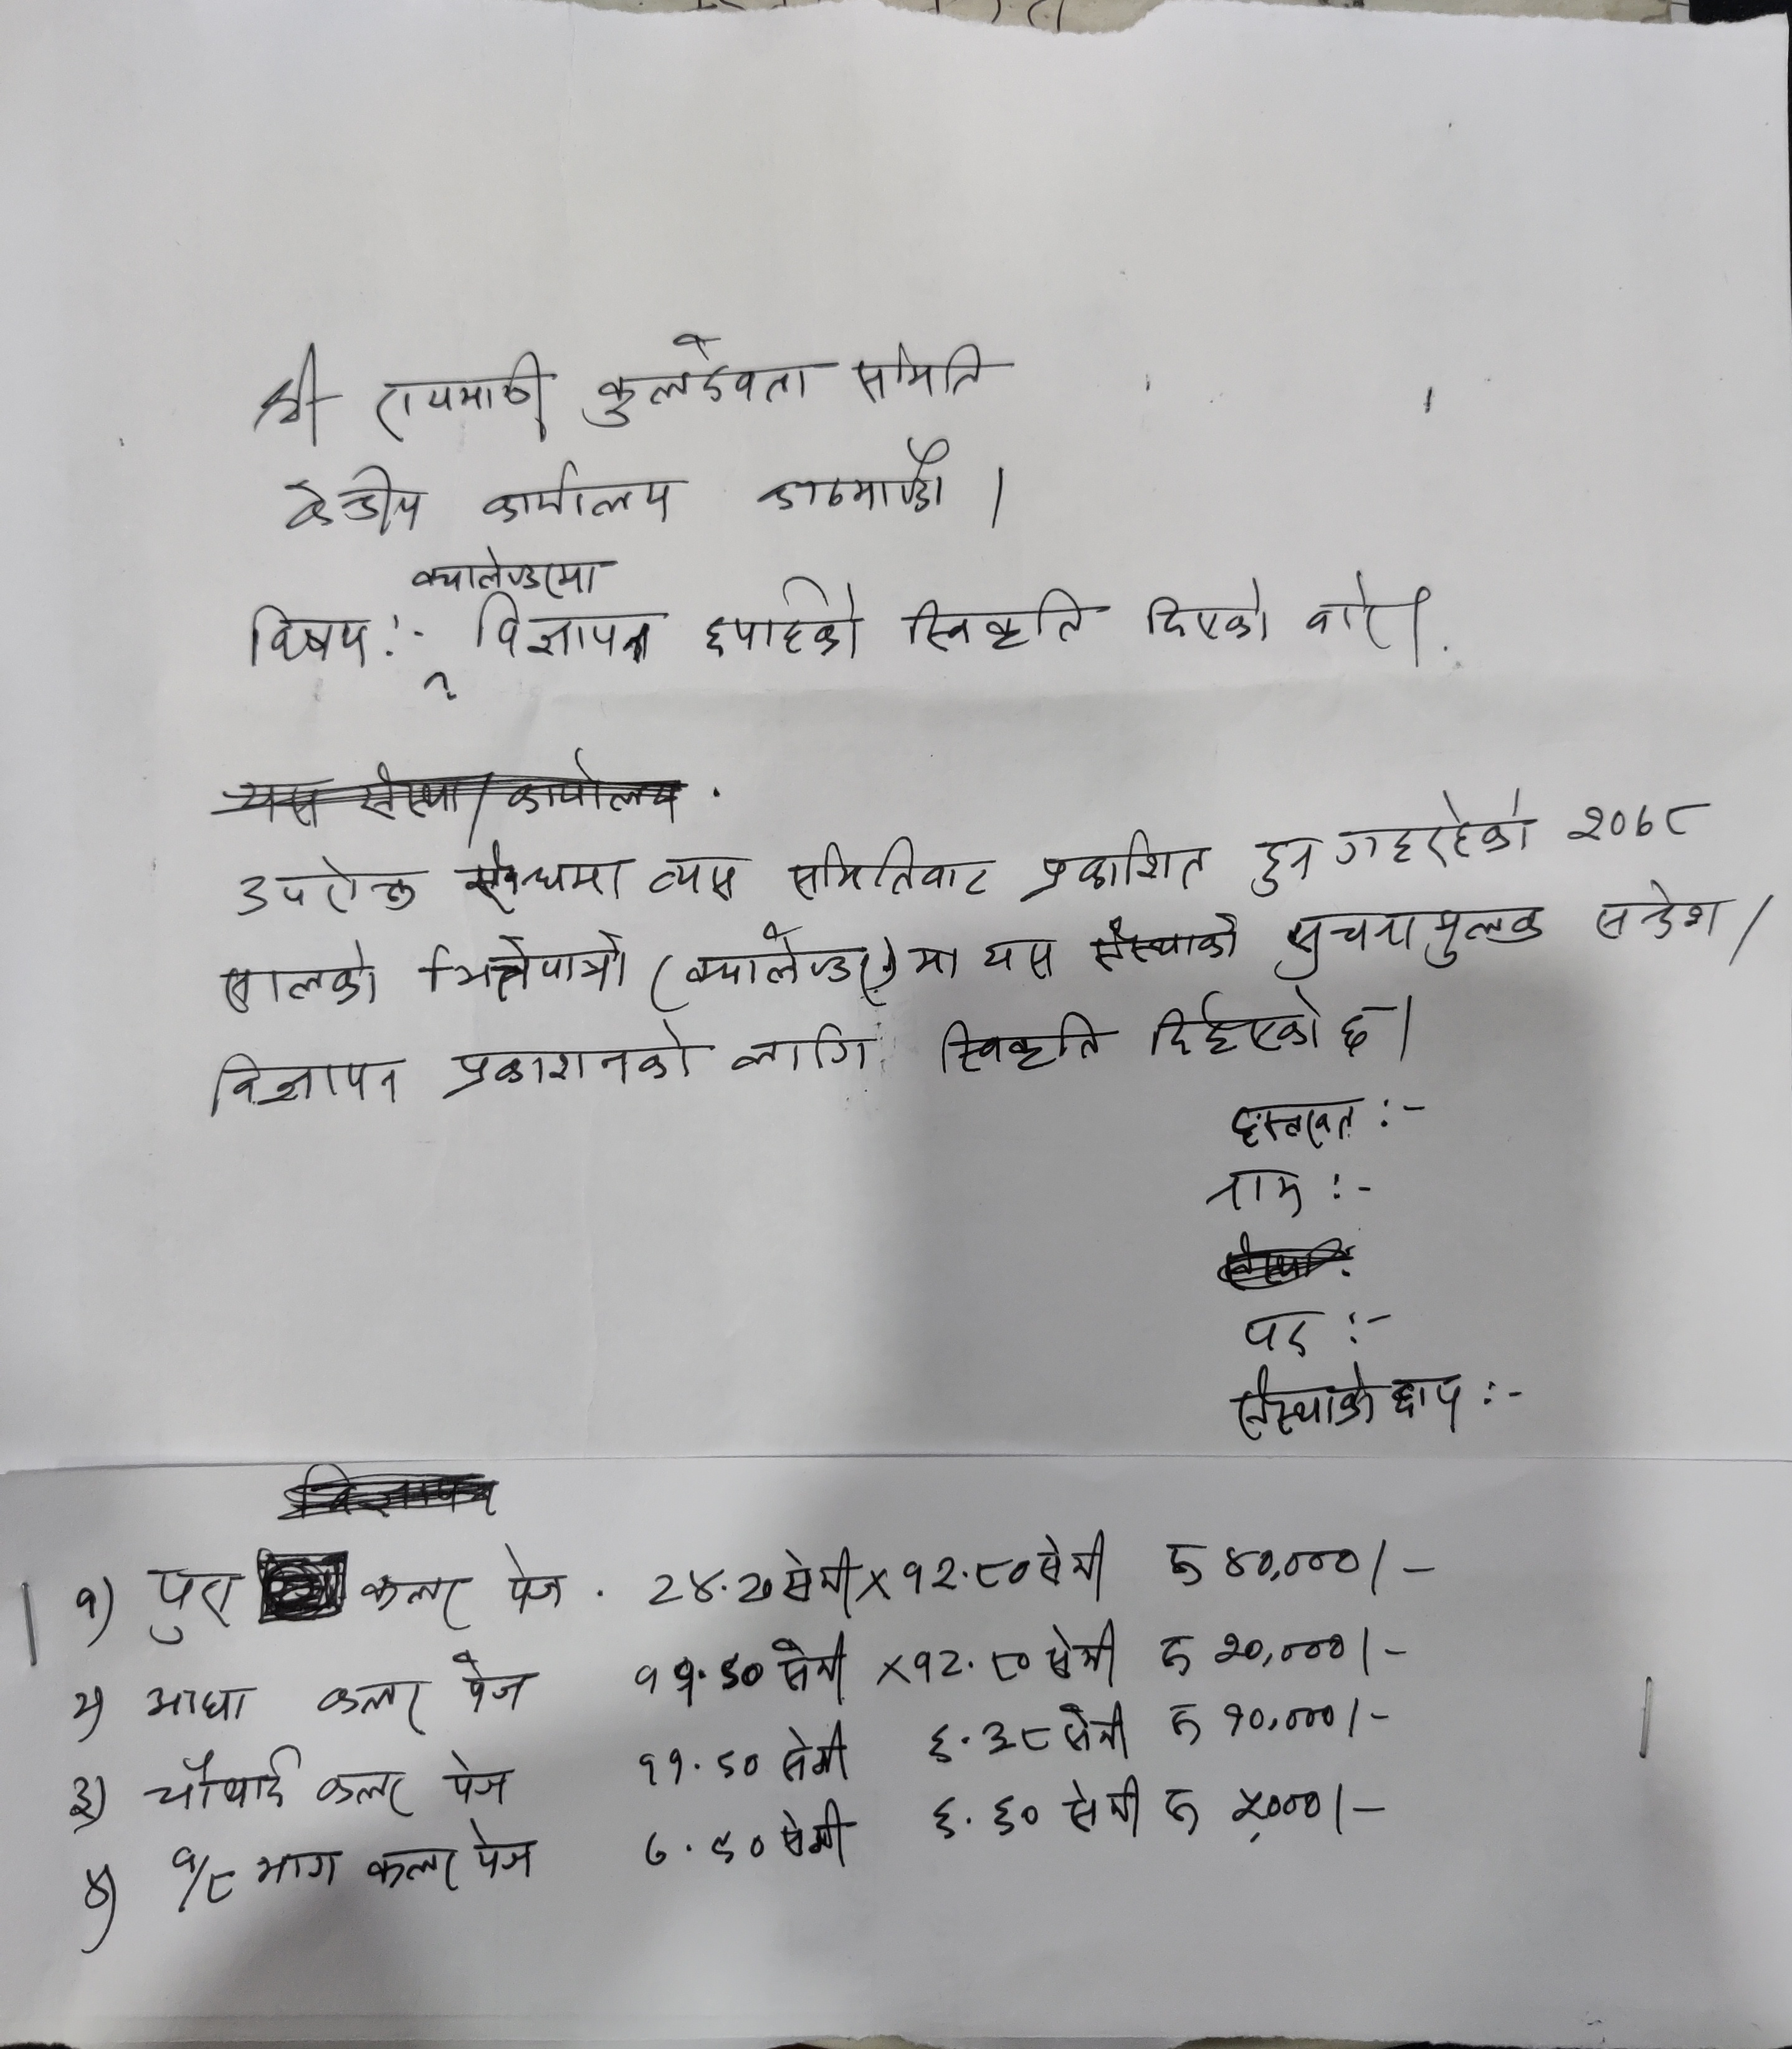 श्री रायमाझी कुलदेवता समिति
केन्द्रीय कार्यालय काठमाण्डौ ।
क्यालेण्डरमा
विषय :- विज्ञापन छपाईको स्विकृति दिएको बारे ।
उपरोक्त सम्बन्धमा त्यस समितिबाट प्रकाशित हुन गइरहेको २०७८
सालको भित्तेपात्रो (क्यालेण्डर) मा यस संस्थाको सुचनामुलक सन्देश /
विज्ञापन प्रकाशनको लागि स्विकृति दिईएको छ ।
हस्ताक्षर :-
नाम :-
पद :-
संस्थाको छाप :-
१) पुरा कलर पेज . २४.२० सेमी X १२.८० सेमी रु ४०,०००/-
२) आधा कलर पेज ११.५० सेमी X १२.८० सेमी रु २०,०००/-
३) चौथाई कलर पेज ११.५० सेमी ६.३८ सेमी रु १०,०००/-
४) १/८ भाग कलर पेज ७.५० सेमी ६.६० सेमी रु ५,०००/-